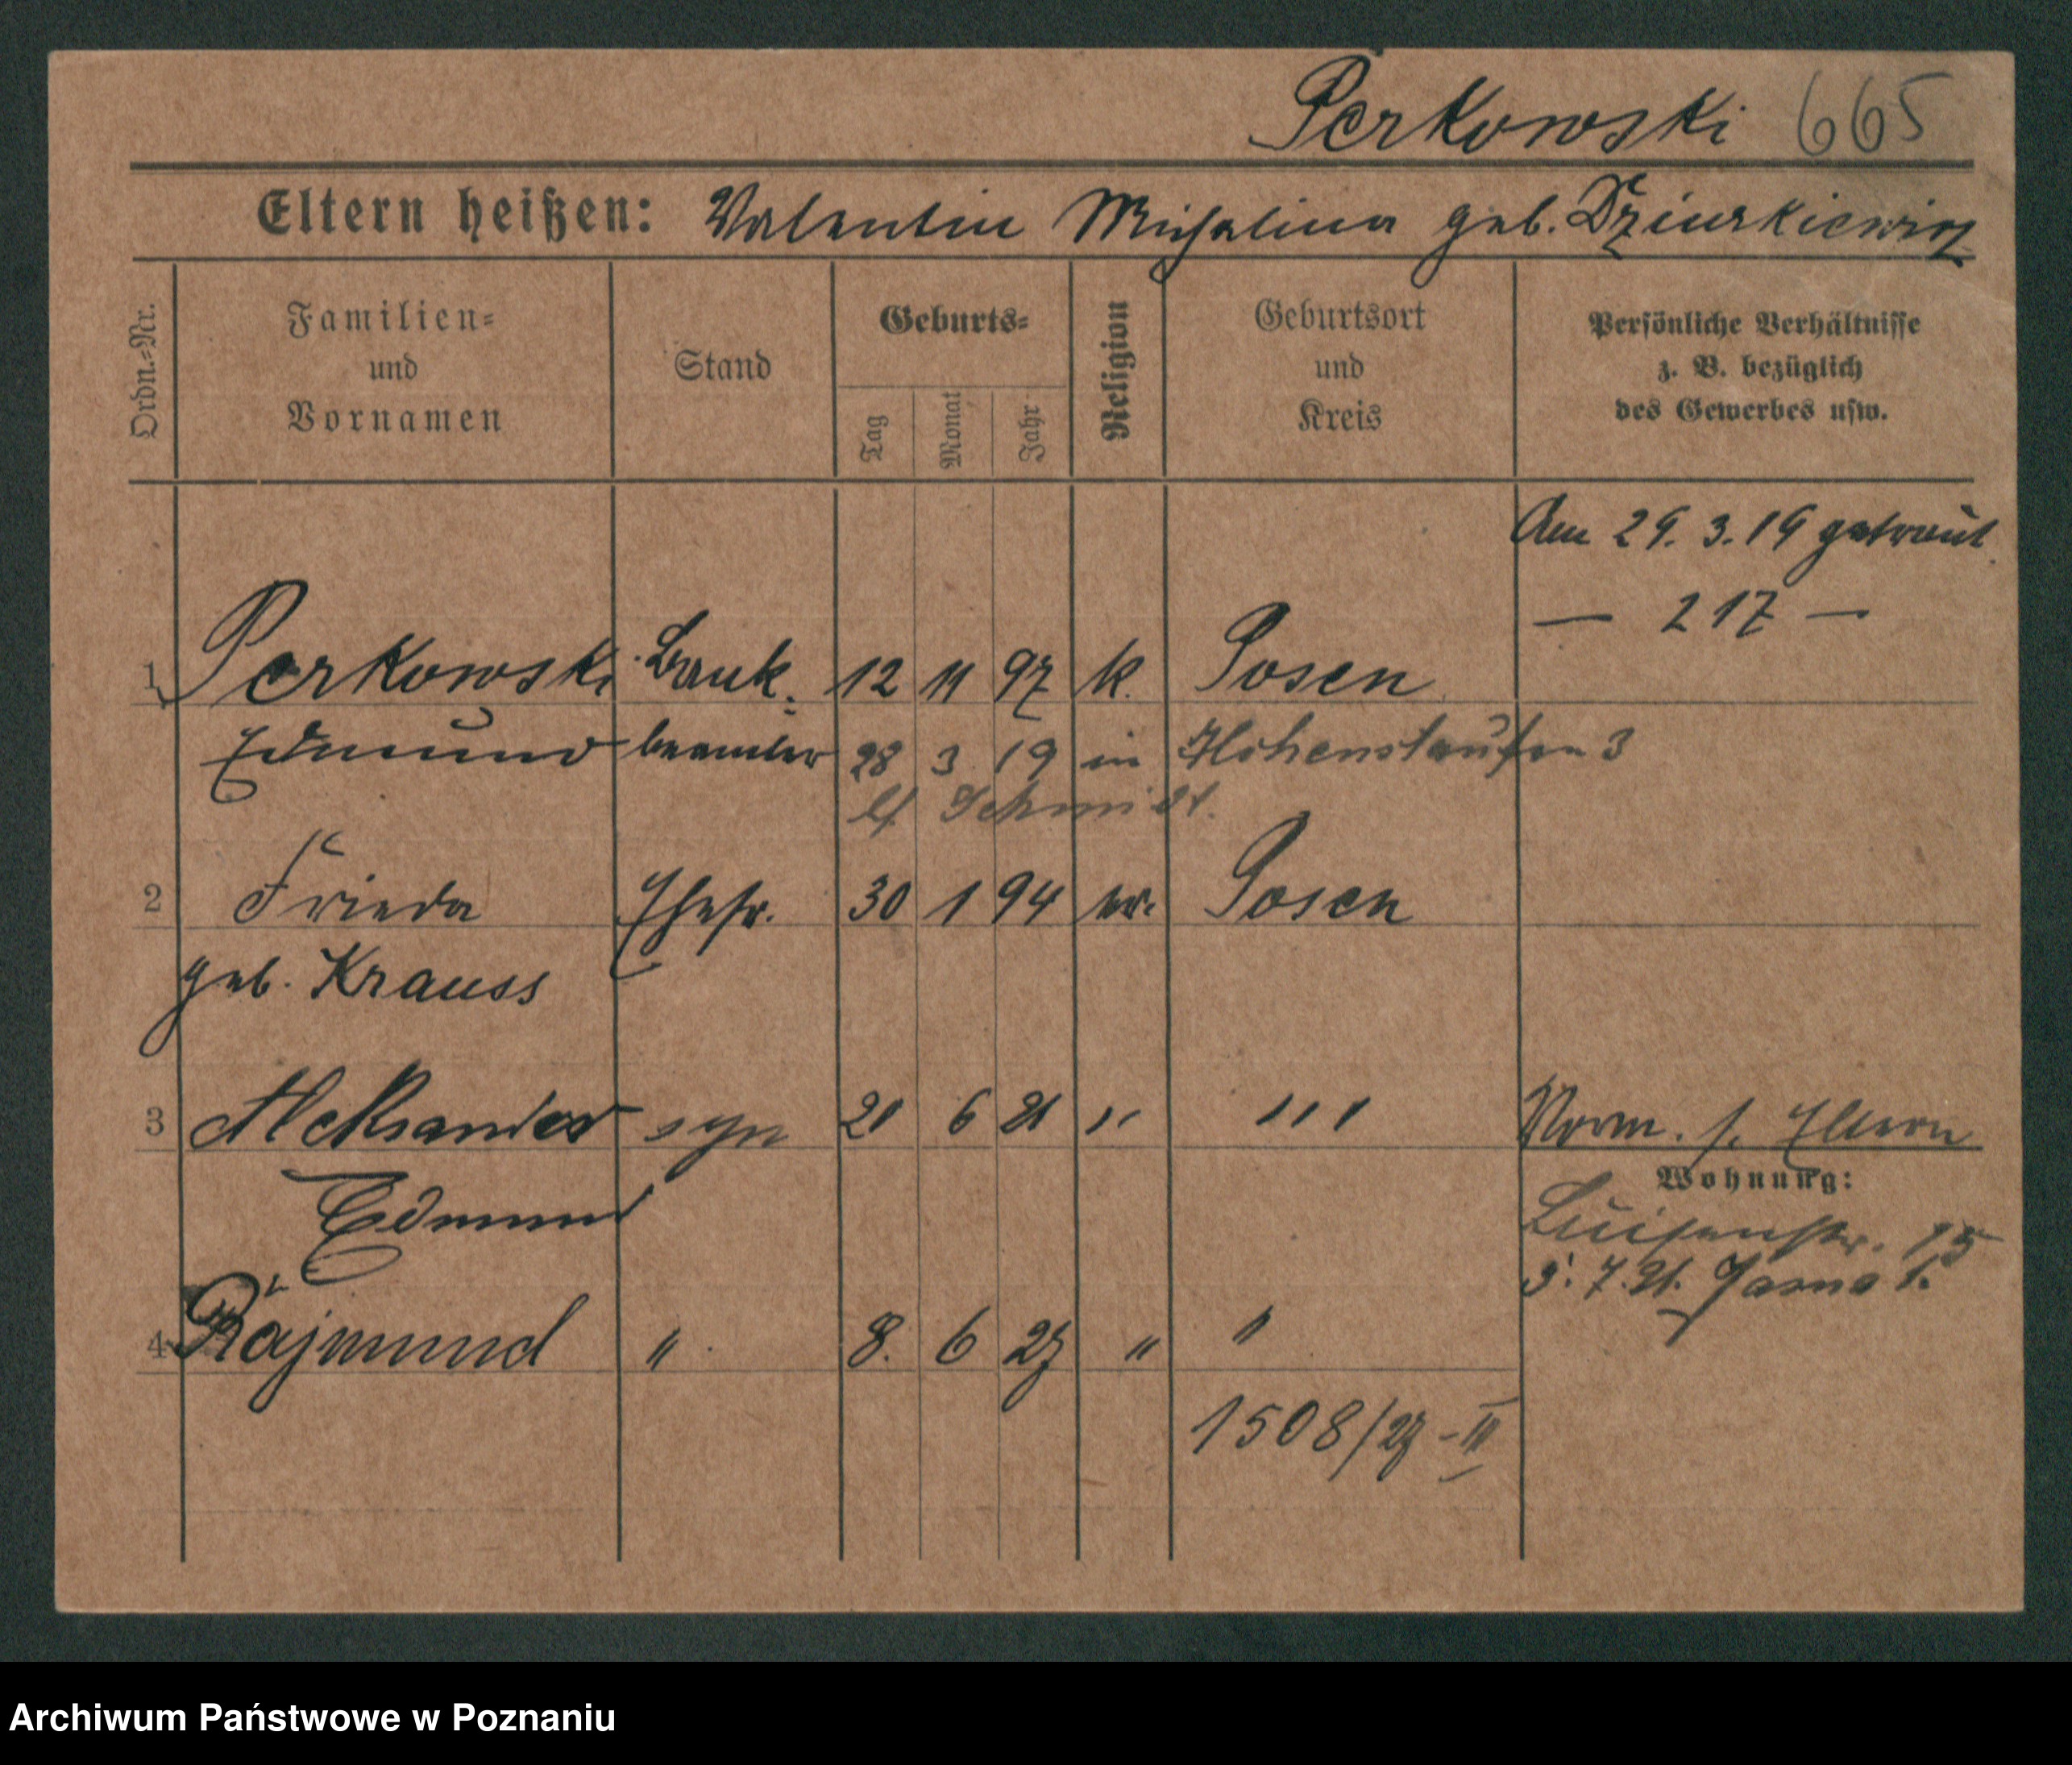 Perkowski 665
Eltern heißen: Valentin Michalina geb. Dziurkiewicz
Ordn.=Nr.
Familien=
und
Vornamen
Stand
Geburts=
Tag
Monat
Jahr
Religion
Geburtsort
und
Kreis
Persönliche Verhältnisse
z. B. bezüglich
des Gewerbes usw.
Am 29. 3. 19 getraut
— 217 —
1 Perkowski Bank= 12 11 97 k. Posen
Edmund beamter 28 3 19 in Hohenstaufen 3
Schmidt.
2 Frieda Ehefr. 30 1 94 Posen
geb. Krauss
3 Aleksander syn 21 6 21 " " "
Edmund
Vorm. s. Eltern
Wohnung:
Luisenstr. 15
5. 7. 21. Jasna
4 Rajmund " 8. 6 27 " "
1508/27 - III
Archiwum Państwowe w Poznaniu